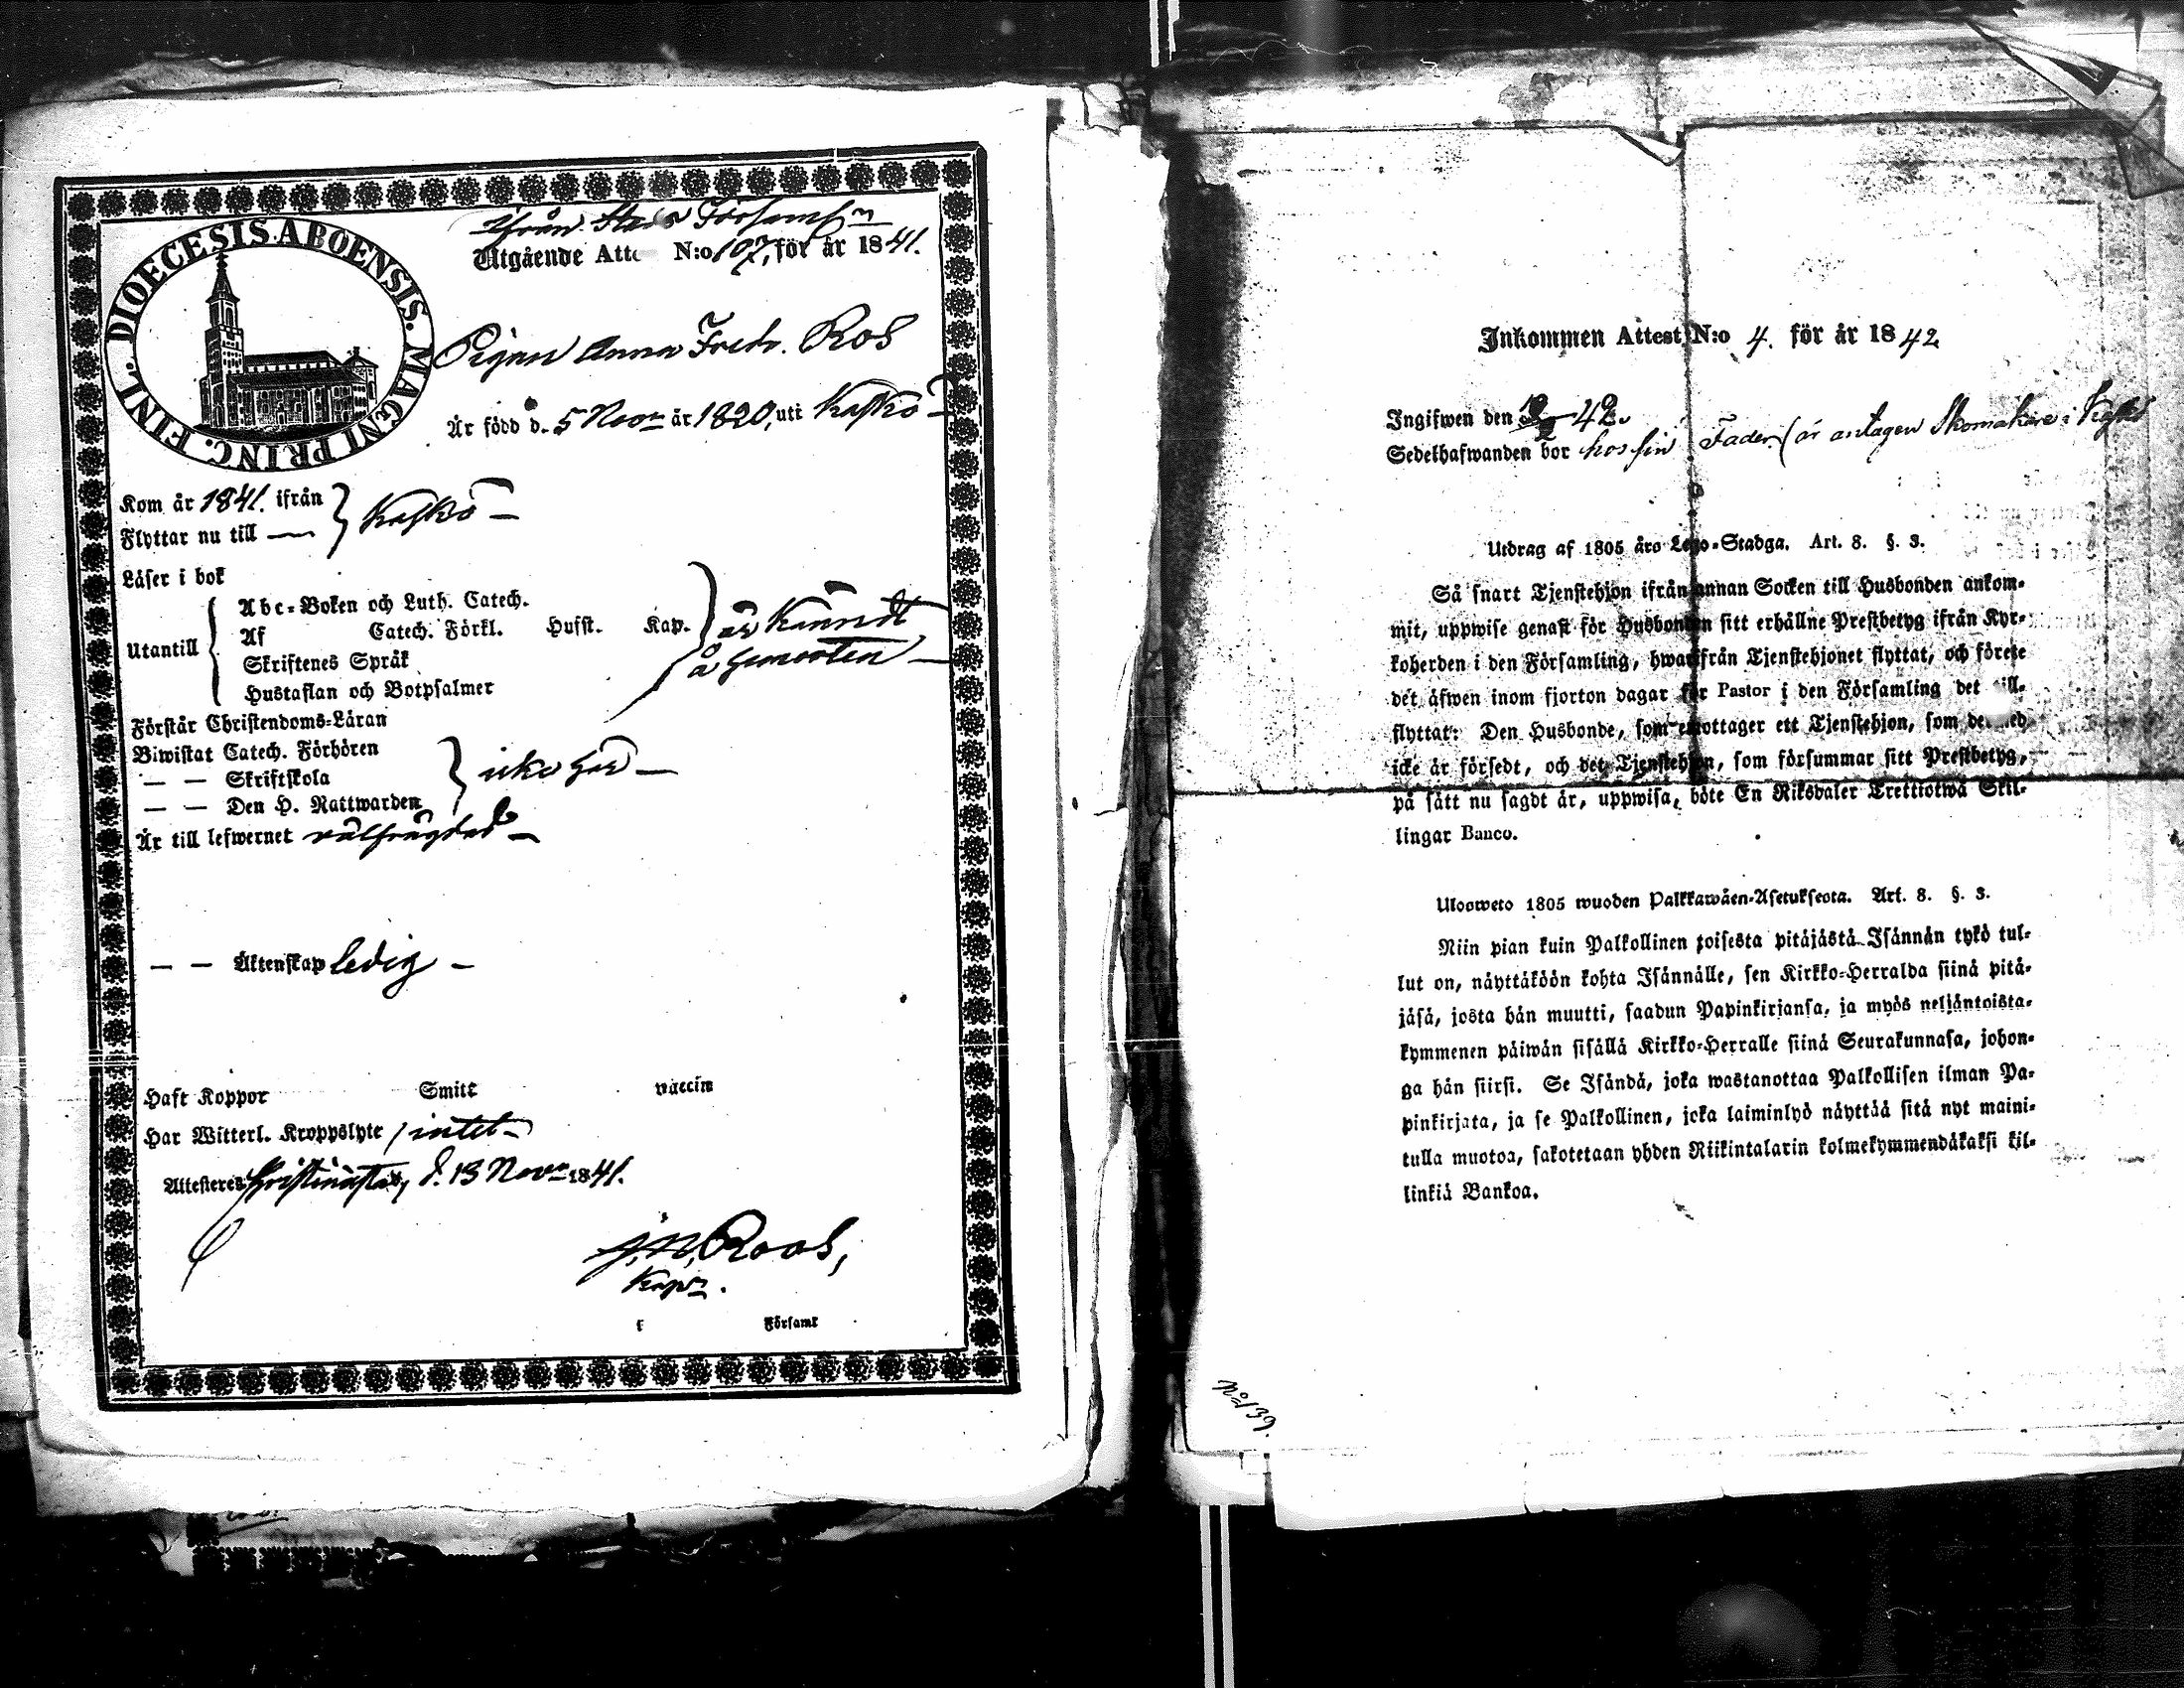 DIOECESIS ABOENSIS. MAGNI PRINC. FINL.
Ifrån Stads Församl:n
Utgående Atte N:o 107, för år 1841.
Pigan Anna Fredr. Ros
Är född d. 5 Nov:r år 1820, uti Kaskö
Kom år 1841. ifrån
Flyttar nu till — } Kaskö —
Läser i bok
Utantill
Abc-Boken och Luth. Catech.
Af Catech. Förkl. Hufst. Kap.
Skriftenes Språk
Hustaflan och Botpsalmer
är kändt
å
Förstår Christendoms-Läran
Biwistat Catech. Förhören
— — Skriftskola
— — Den H. Nattwarden
icke här —
Är till lefwernet välfrägdad —
— — Äktenskap ledig —
Haft Koppor Smitt vaccin
Har Witterl. Kroppslyte intet —
Attesteres Christinæstad, d. 13 Nov:r 1841.
J. N. Roos,
Kapn.
Församl
Inkommen Attest N:o 4. för år 1842
Ingifwen den 42.
Sedelhafwanden bor hos sin Fader (är antagen Skomakare i
Utdrag af 1805 års Lego-Stadga. Art. 8. §. 3.
Så snart Tjenstehjon ifrån annan Socken till Husbonden ankom-
mit, uppwise genast för Husbonden sitt erhållne Prestbetyg ifrån Kyr-
koherden i den Församling, hwarifrån Tjenstehjonet flyttat, och förete
det äfwen inom fjorton dagar för Pastor i den Församling det till-
flyttat: Den Husbonde, som emottager ett Tjenstehjon, som dermed
icke är försedt, och det Tjenstehjon, som försummar sitt Prestbetyg,
på sätt nu sagdt är, uppwisa, böte En Riksdaler Trettiotwå Skil-
lingar Banco.
Ulosweto 1805 wuoden Palkkawäen-Asetuksesta. Art. 8. §. 3.
Niin pian kuin Palkollinen toisesta pitäjästä Isännän tykö tul-
lut on, näyttäköön kohta Isännälle, sen Kirkko-Herralda siinä pitä-
jäsä, josta hän muutti, saadun Papinkirjansa, ja myös neljäntoista-
kymmenen päiwän sisällä Kirkko-Herralle siinä Seurakunnasa, johon-
ga hän siirsi. Se Isändä, joka wastanottaa Palkollisen ilman Pa-
pinkirjata, ja se Palkollinen, joka laiminlyö näyttää sitä nyt maini-
tulla muotoa, sakotetaan yhden Riikintalarin kolmekymmendäkaksi kil-
linkiä Bankoa.
No 139.